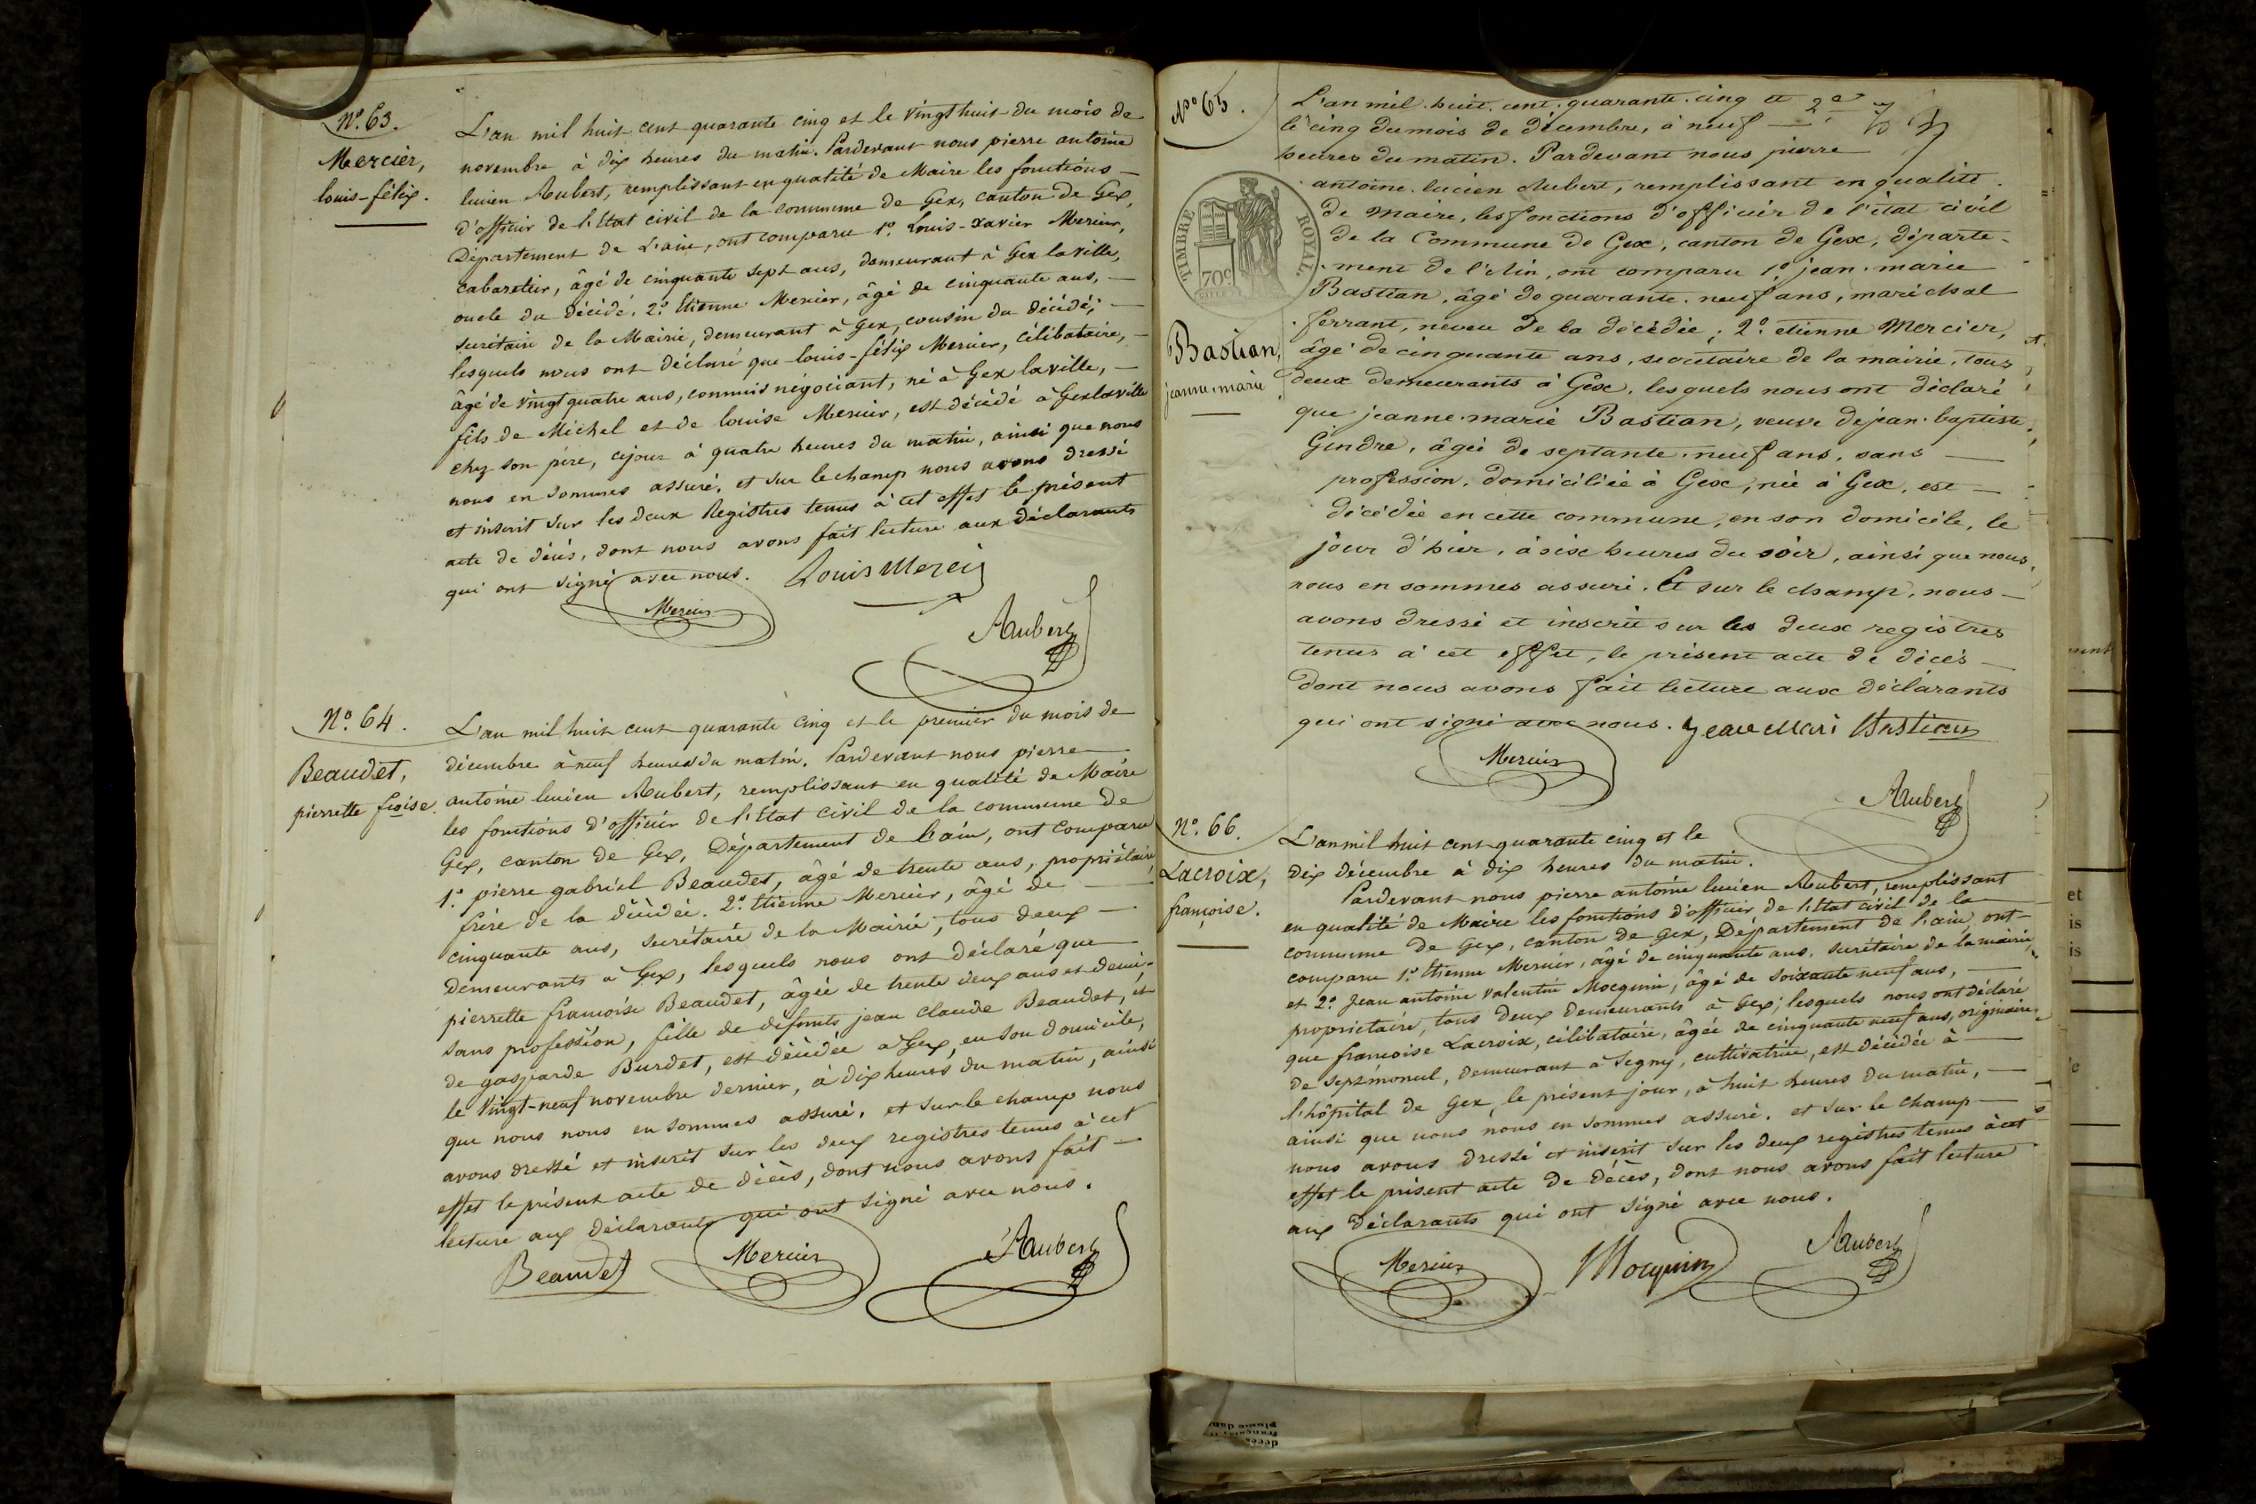 Nº. 63.
Mercier,
louis-félix.
L'an mil huit cent quarante cinq et le vingt huit du mois de
novembre à dix heures du matin. Pardevant nous pierre antoine
lucien Aubert, remplissant en qualité de Maire les fonctions
d'officier de l'Etat civil de la commune de Gex, canton de Gex,
Département de L'ain, ont comparu 1º. Louis-xavier Mercier,
cabaretier, âgé de cinquante sept ans, demeurant à Gex la ville,
oncle du décédé. 2º. Etienne Mercier, âgé de cinquante ans,
secrétaire de la Mairie, demeurant à Gex, cousin du décédé;
lesquels nous ont déclaré que louis-félix Mercier, célibataire,
âgé de vingt quatre ans, commis négociant, né à Gex la ville,
fils de Michel et de louise Mercier, est décédé à Gex la ville
chez son père, cejour à quatre heures du matin, ainsi que nous
nous en sommes assuré. et sur le champ nous avons dressé
et inscrit sur les deux Registres tenus à cet effet le présent
acte de décès, dont nous avons fait lecture aux déclarants
qui ont signé avec nous.
Louis Mercier
Mercier
Aubert
Nº. 64.
Beaudet,
pierrette fçoise.
L'an mil huit cent quarante cinq et le premier du mois de
décembre à neuf heures du matin. Pardevant nous pierre
antoine lucien Aubert, remplissant en qualité de Maire
les fonctions d'officier de l'Etat civil de la commune de
Gex, canton de Gex, Département de l'ain, ont comparu
1º. pierre gabriel Beaudet, âgé de trente ans, propriétaire,
frère de la décédée. 2º. Etienne Mercier, âgé de
cinquante ans, secrétaire de la Mairie; tous deux
demeurants à Gex, lesquels nous ont déclaré que
pierrette françoise Beaudet, âgée de trente deux ans et demi,
sans profession, fille de défunts jean claude Beaudet, et
de gasparde Burdet, est décédée à Gex, en son domicile,
le vingt-neuf novembre dernier, à dix heures du matin, ainsi
que nous nous en sommes assuré. et sur le champ nous
avons dressé et inscrit sur les deux registres tenus à cet
effet le présent acte de décès, dont nous avons fait
lecture aux déclarants qui ont signé avec nous.
Beaudet
Mercier
Aubert
Nº 65.
TIMBRE ROYAL.
70c
Bastian,
jeanne marie
L'an mil huit cent quarante cinq et
le cinq du mois de décembre, à neuf
heures du matin. Pardevant nous pierre
antoine lucien Aubert, remplissant en qualité
de maire, les fonctions d'officier de l'état civil
de la Commune de Gex, canton de Gex, départe-
ment de l'Ain, ont comparu 1º. jean marie
Bastian, âgé de quarante neuf ans, maréchal
ferrant, neveu de la décédée; 2º. etienne Mercier,
âgé de cinquante ans, secrétaire de la mairie, tous
deux demeurants à Gex, lesquels nous ont déclaré
que jeanne marie Bastian, veuve de jean baptiste
Gindre, âgée de septante neuf ans, sans
profession, domiciliée à Gex, née à Gex, est
décédée en cette commune, en son domicile, le
jour d'hier, à six heures du soir, ainsi que nous
nous en sommes assuré. Et sur le champ, nous
avons dressé et inscrit sur les deux registres
tenus à cet effet, le présent acte de décès
dont nous avons fait lecture aux déclarants
qui ont signé avec nous. Jean Mari Bastian
Mercier
Aubert
Nº. 66.
Lacroix,
françoise.
L'an mil huit cent quarante cinq et le
dix décembre à dix heures du matin.
Pardevant nous pierre antoine lucien Aubert, remplissant
en qualité de Maire les fonctions d'officier de l'Etat civil de la
commune de Gex, canton de Gex, Département de l'ain, ont
comparu 1º. Etienne Mercier, âgé de cinquante ans, secrétaire de la mairie,
et 2º. Jean antoine valentin Mocquin, âgé de soixante neuf ans,
propriétaire, tous deux demeurants à Gex; lesquels nous ont déclaré
que françoise Lacroix, célibataire, âgée de cinquante neuf ans, originaire
de septmoncel, demeurant à Segny, cultivatrice, est décédée à
l'hôpital de Gex, le présent jour, à huit heures du matin,
ainsi que nous nous en sommes assuré. et sur le champ
nous avons dressé et inscrit sur les deux registres tenus à cet
effet le présent acte de décès, dont nous avons fait lecture
aux déclarants qui ont signé avec nous.
Mercier
Mocquin
Aubert
et
is
is